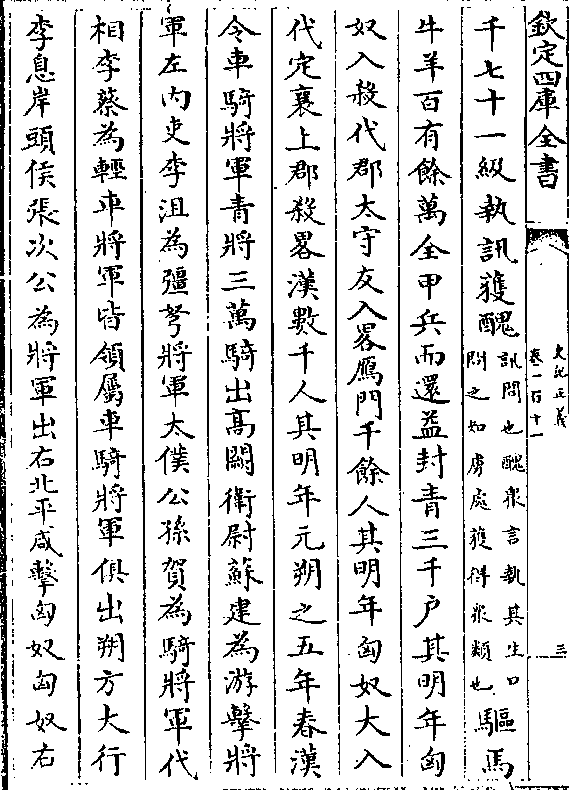 欽定四庫全書
史記正義
卷一百十一
三
千七十一級執訊獲醜訊問也醜衆言執其生口問之知虜處獲得衆類也驅馬
牛羊百有餘萬全甲兵而還益封青三千户其明年匈
奴入殺代郡太守友入畧鴈門千餘人其明年匈奴大入
代定襄上郡殺畧漢數千人其明年元朔之五年春漢
令車騎將軍青將三萬騎出高闕衛尉蘇建為游擊將
軍左内史李沮為彊弩將軍太僕公孫賀為騎將軍代
相李蔡為輕車將軍皆領屬車騎將軍俱出朔方大行
李息岸頭侯張次公為將軍出右北平咸擊匈奴匈奴右